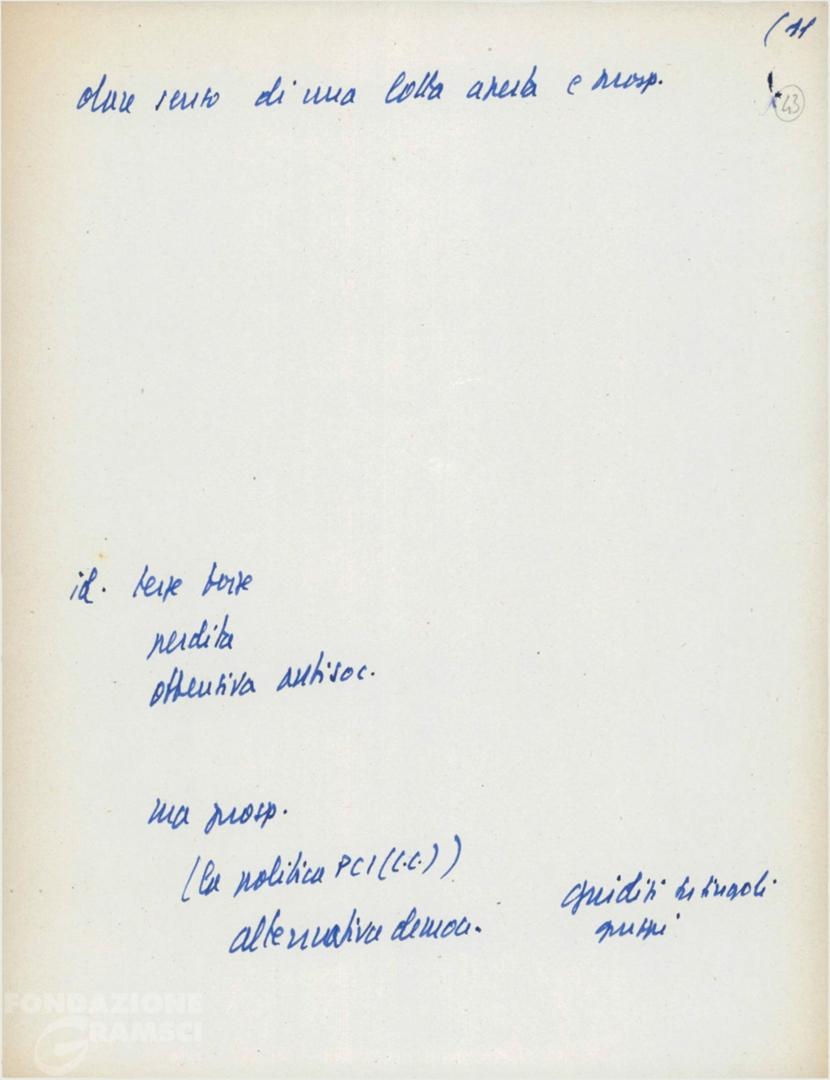 (11
43
dare senso di una lotta aperta e prosp.
id. forze
perdita
offensiva antisoc.
ma prosp.
(la politica PCI (C.C.))
alternativa democ.
giudizi su singoli
gruppi
FONDAZIONE
GRAMSCI